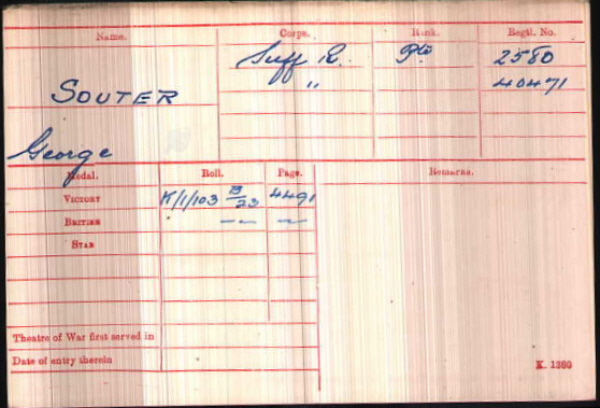 Name. Corps. Rank. Regtl. No.
Suff R. Pte 2580
SOUTER " 40471
George
Medal. Roll. Page. Remarks.
VICTORY K/1/103 B/23 4491
BRITISH — " — — " —
STAR
Theatre of War first served in
Date of entry therein
K. 1380